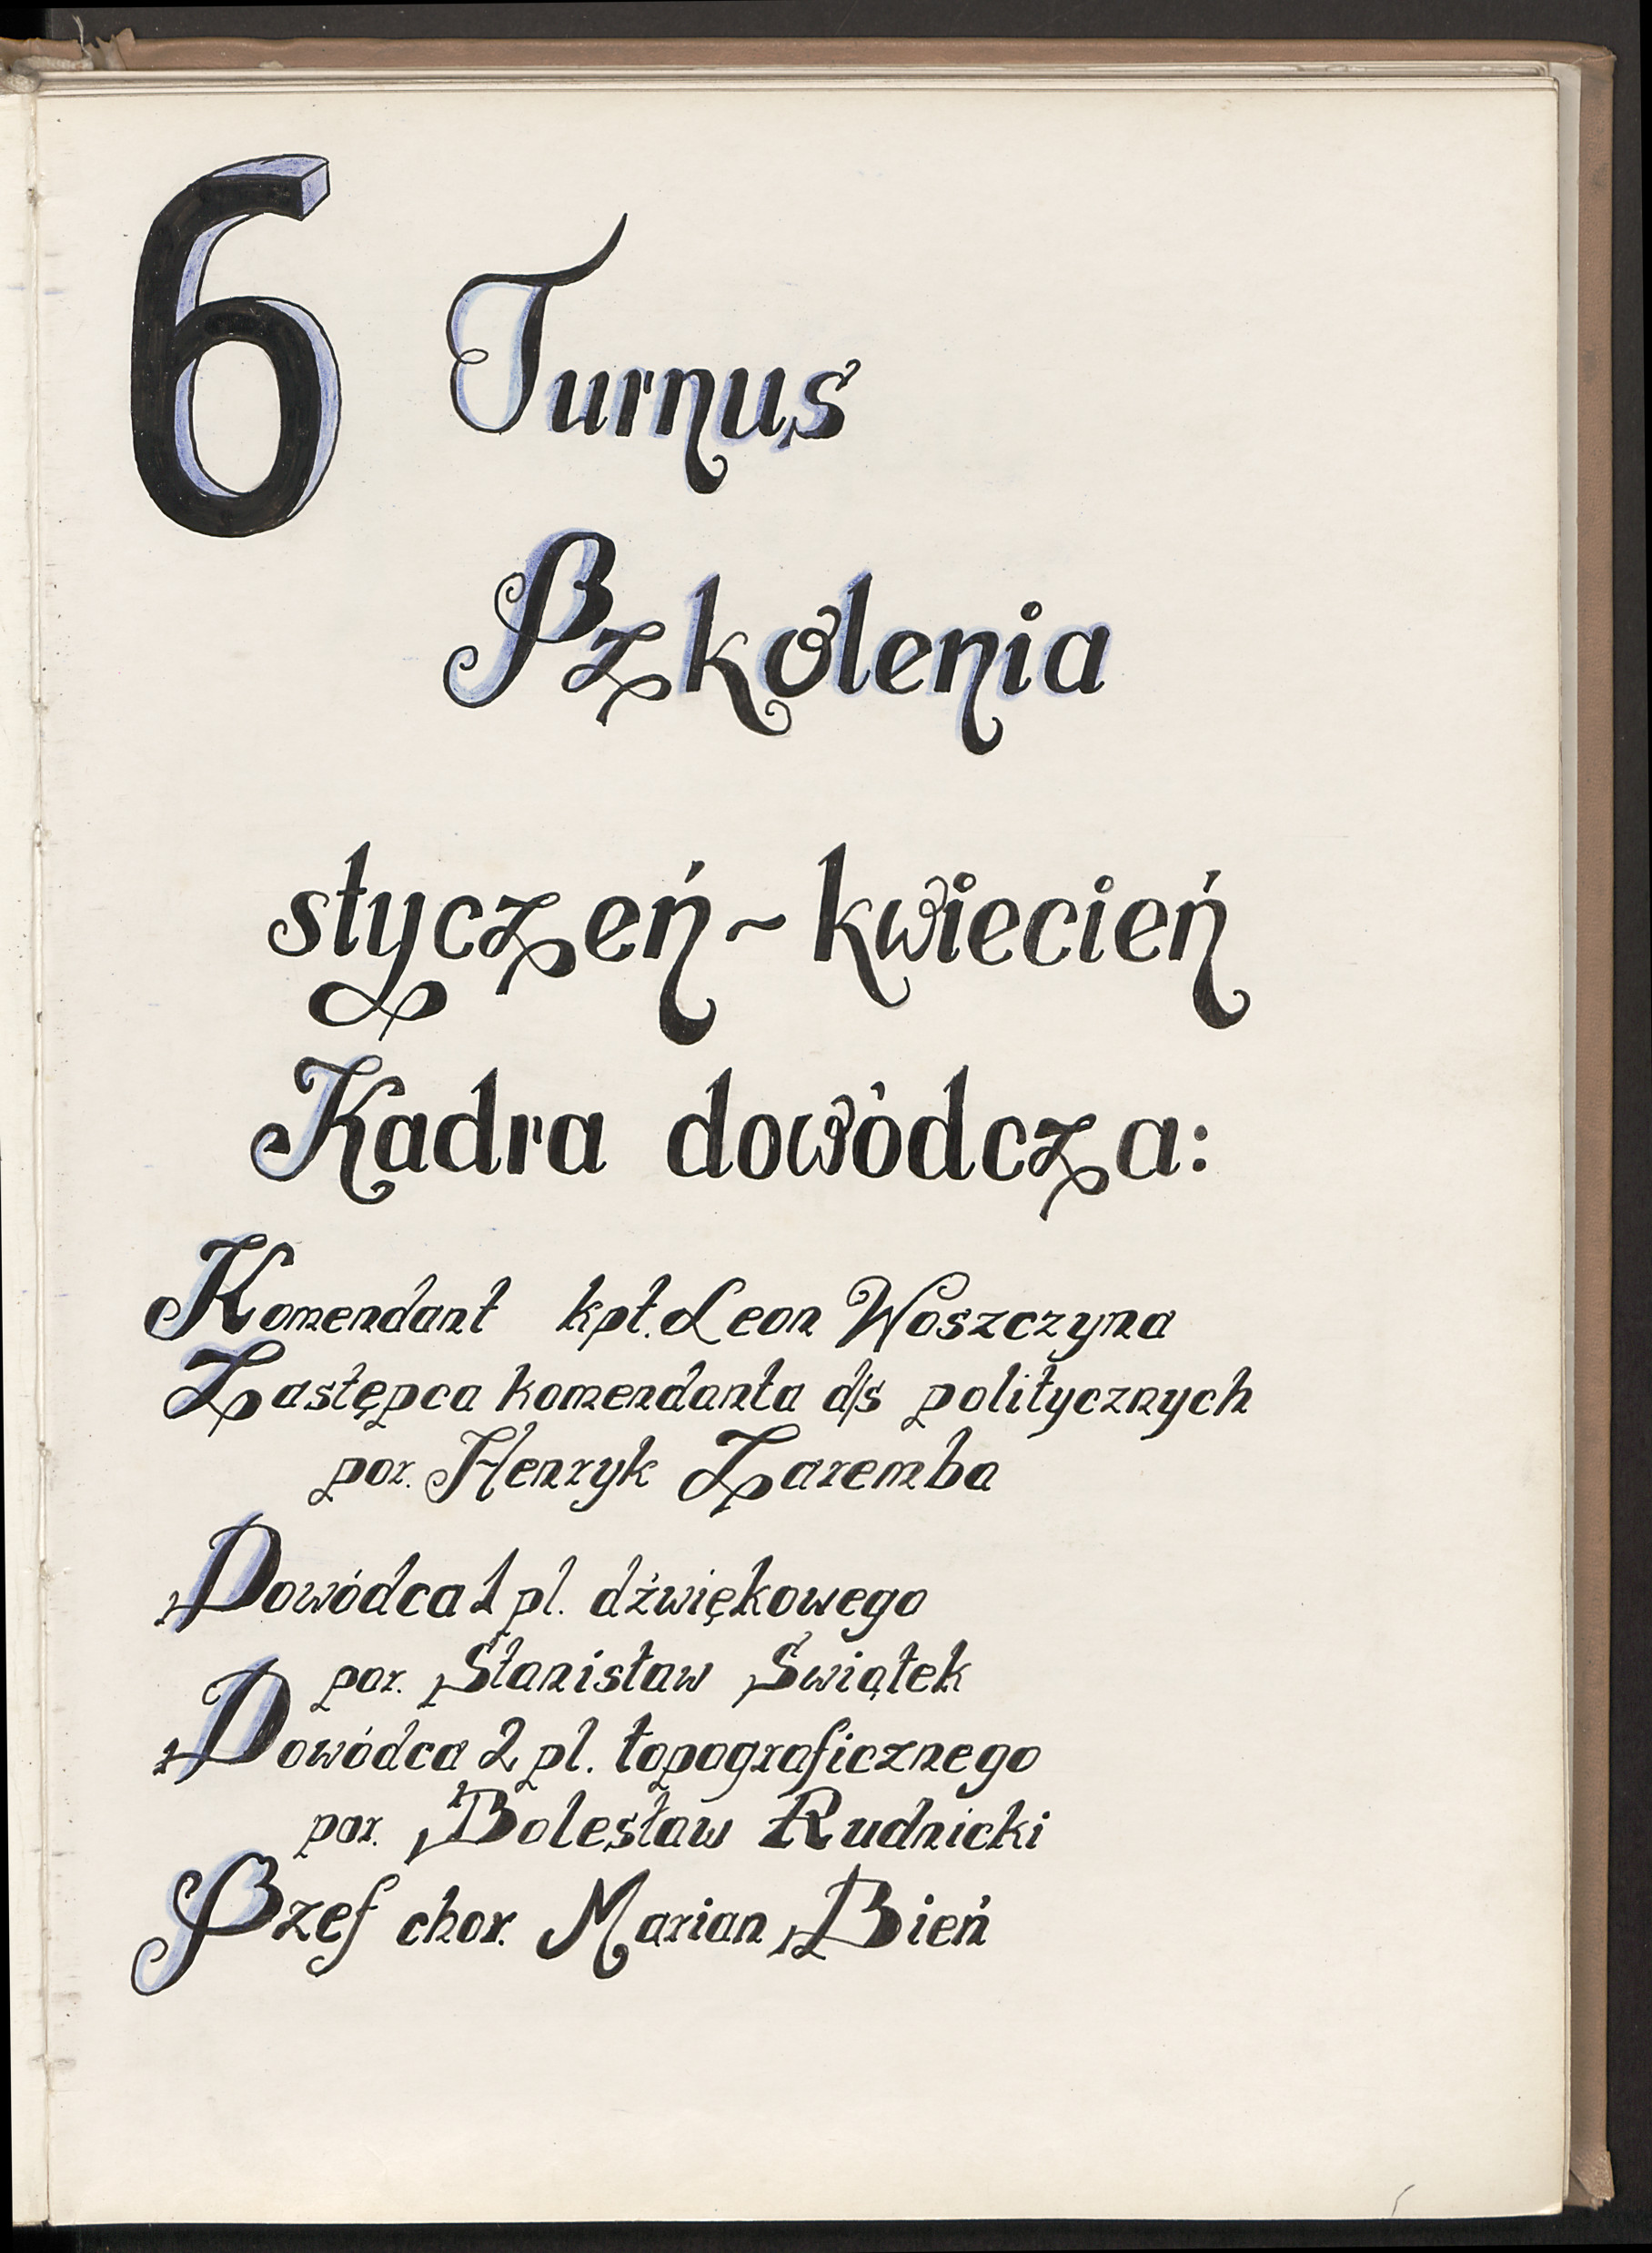 6 Turnus
Szkolenia
styczeń ~ kwiecień
Kadra dowódcza:
Komendant kpt. Leon Woszczyna
Zastępca komendanta d/s politycznych
por. Henryk Zaremba
Dowódca 1 pl. dźwiękowego
por. Stanisław Świątek
Dowódca 2 pl. topograficznego
por. Bolesław Rudnicki
Szef chor. Marian Bień